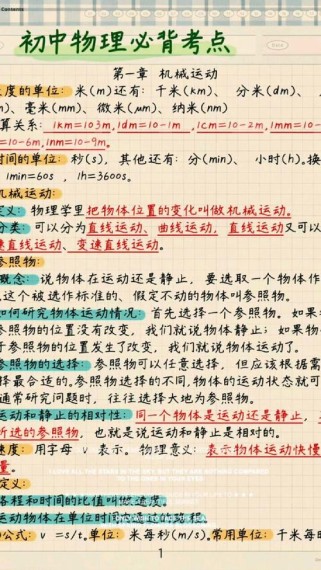 Contents
初中物理必背考点
第一章 机械运动
度的单位: 米(m)还有: 千米(km)、 分米(dm)、
)、毫米(mm)、微米(μm)、纳米(nm)
算关系: 1km=103m,1dm=10-1m ,1cm=10-2m,1mm=10-
=10-6m,1nm=10-9m。
时间的单位: 秒(s), 其他还有: 分(min)、 小时(h)。换
1min=60s , 1h=3600s。
机械运动:
定义: 物理学里把物体位置的变化叫做机械运动。
分类: 可以分为直线运动、曲线运动, 直线运动又可以
速直线运动、变速直线运动。
参照物:
概念: 说物体在运动还是静止, 要选取一个物体作
,这个被选作标准的、假定不动的物体叫参照物。
如何研究物体运动情况: 首先选择一个参照物。如果
参照物的位置没有改变, 我们就说物体静止; 如果物
于参照物的位置发生了改变, 我们就说物体运动了。
参照物的选择: 参照物可以任意选择, 但应该根据需
择最合适的,参照物选择的不同,物体的运动状态就可
通常研究问题时, 往往选择大地为参照物。
运动和静止的相对性: 同一个物体是运动还是静止,
所选的参照物, 也就是说运动和静止是相对的。
速度: 用字母 v 表示。物理意义: 表示物体运动快慢
量。
定义:
路程和时间的比值叫做速度。
运动物体在单位时间内通过的路程。
公式: v =s/t。单位: 米每秒(m/s)。常用单位: 千米每
1